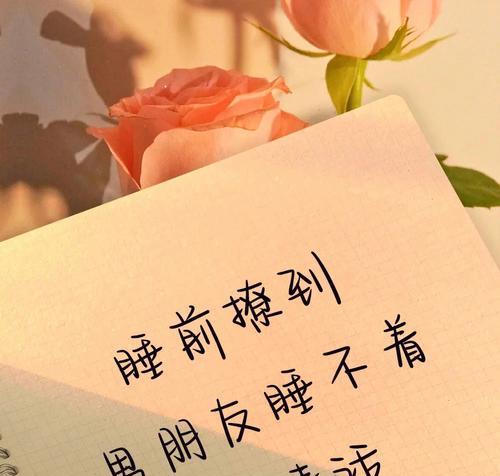 睡前撩到
男朋友睡不着
情话